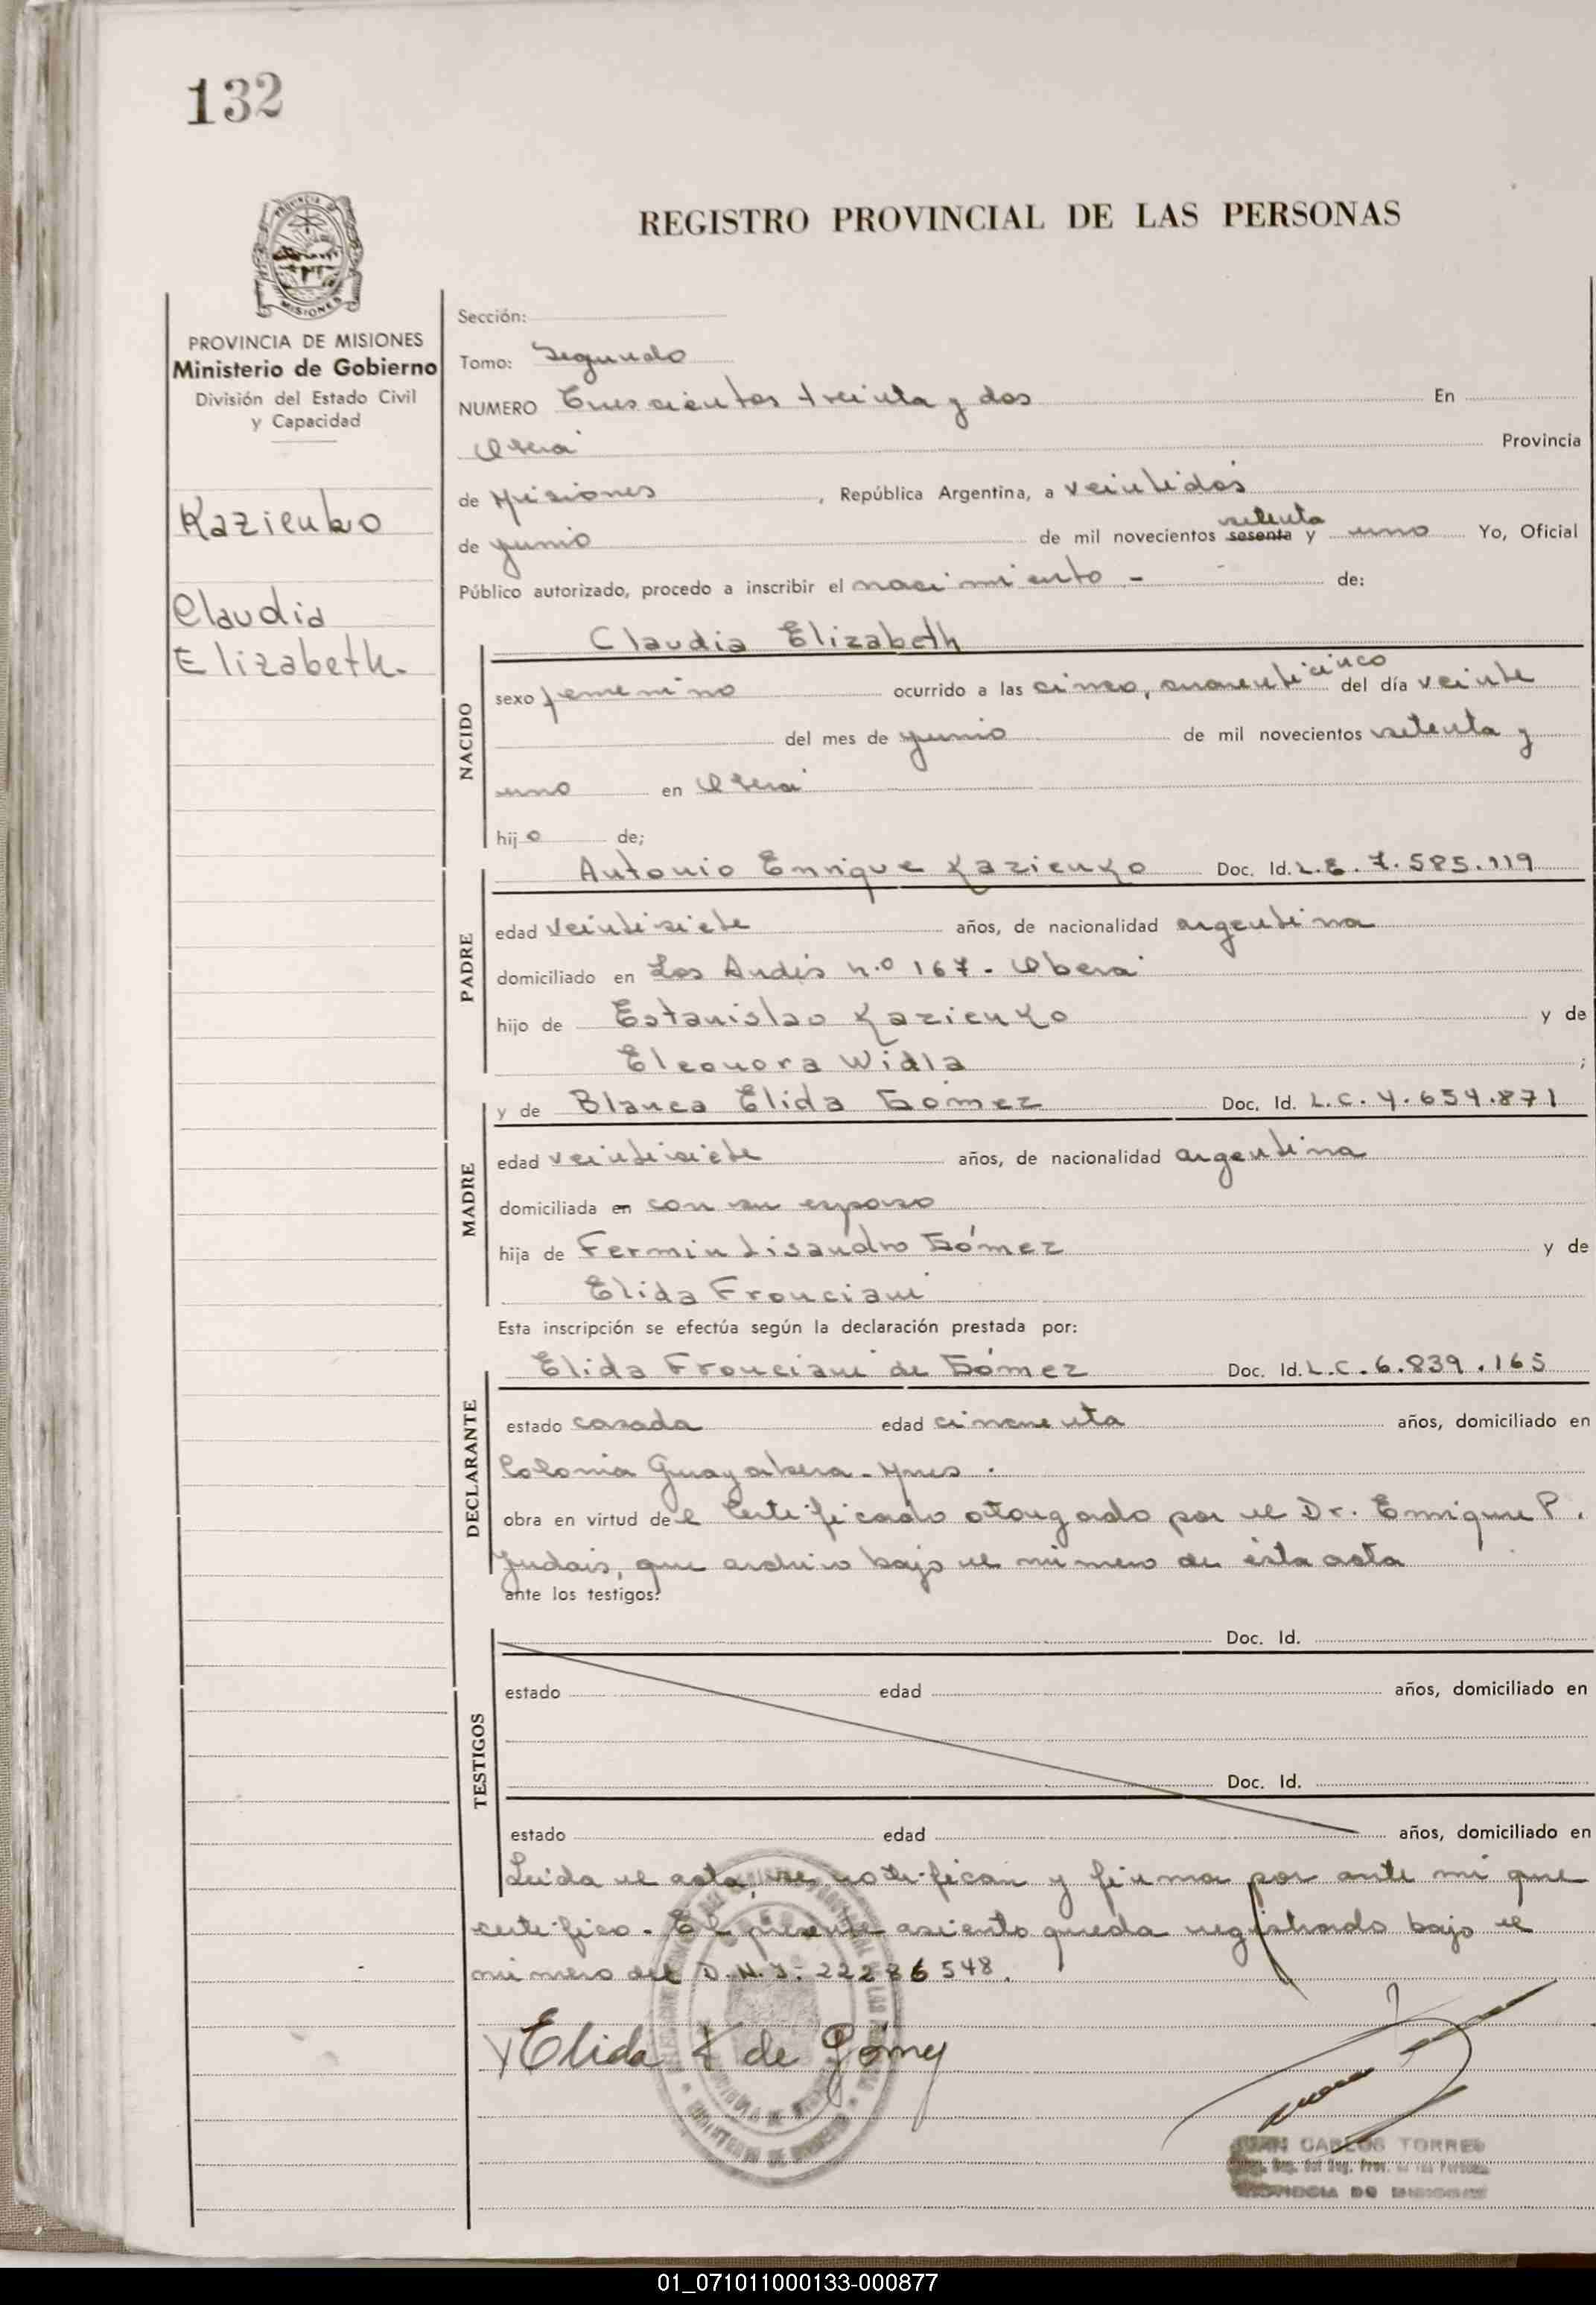 132
REGISTRO PROVINCIAL DE LAS PERSONAS
PROVINCIA DE MISIONES
Ministerio de Gobierno
División del Estado Civil
y Capacidad
Kazienko
Claudia
Elizabeth.
Sección:
Tomo: Segundo
NUMERO Trescientos treinta y dos En
Oberá Provincia
de Misiones , República Argentina, a veintidós
de junio de mil novecientos sesenta setenta y uno Yo, Oficial
Público autorizado, procedo a inscribir el nacimiento - de:
NACIDO
Claudia Elizabeth
sexo femenino ocurrido a las cinco, cuarenticinco del día veinte
del mes de junio de mil novecientos setenta y
uno en Oberá
hij a de;
PADRE
Antonio Enrique Kazienko Doc. Id. L.E. 7.585.119
edad veintisiete años, de nacionalidad argentina
domiciliado en Los Andes n.o 167 - Oberá
hijo de Estanislao Kazienko y de
Eleonora Widla ;
MADRE
y de Blanca Elida Gómez Doc. Id. L.C. 4.654.871
edad veintisiete años, de nacionalidad argentina
domiciliada en con su esposo
hija de Fermin Lisandro Gómez y de
Elida Fronciani
Esta inscripción se efectúa según la declaración prestada por:
DECLARANTE
Elida Fronciani de Gómez Doc. Id. L.C. 6.839.165
estado casada edad cincuenta años, domiciliado en
Colonia Guayabera - Mnes.
obra en virtud del Certificado otorgado por el Dr. Enrique P.
Judais, que archivo bajo el número de esta acta
ante los testigos:
TESTIGOS
Doc. Id.
estado edad años, domiciliado en
Doc. Id.
estado edad años, domiciliado en
Leída el acta, se notifican y firma por ante mi que
certifico - El presente asiento queda registrado bajo el
número del D.N.I: 22286548.
Elida F de Gómez
JUAN CARLOS TORRES
01_071011000133-000877